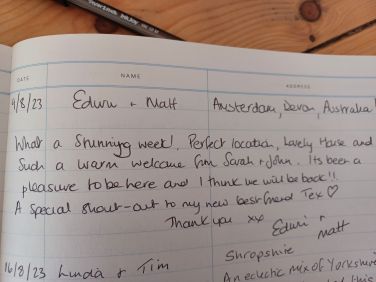 DATE NAME ADDRESS
9/8/23 Edwu + Matt Amsterdam, Devon, Australia!
What a Stunning week! Perfect location, Lovely House and
Such a warm welcome from Sarah + John. Its been a
pleasure to be here and I think we will be back!!
A special shout-out to my new best friend Tex ♡
Thank you xx
Edwu + Matt
16/8/23 Linda + Tim Shropshire
An eclectic mix of Yorkshire